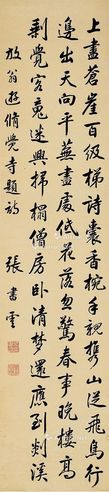 上盡蒼崖百級梯詩囊香椀手親攜山從飛鳥行
邊出天向平蕪盡處低花落忽驚春事晚樓高
剩覺客魂迷興掃榻僧房卧清夢還應到剡溪
放翁遊脩覺寺題詩 張書雲